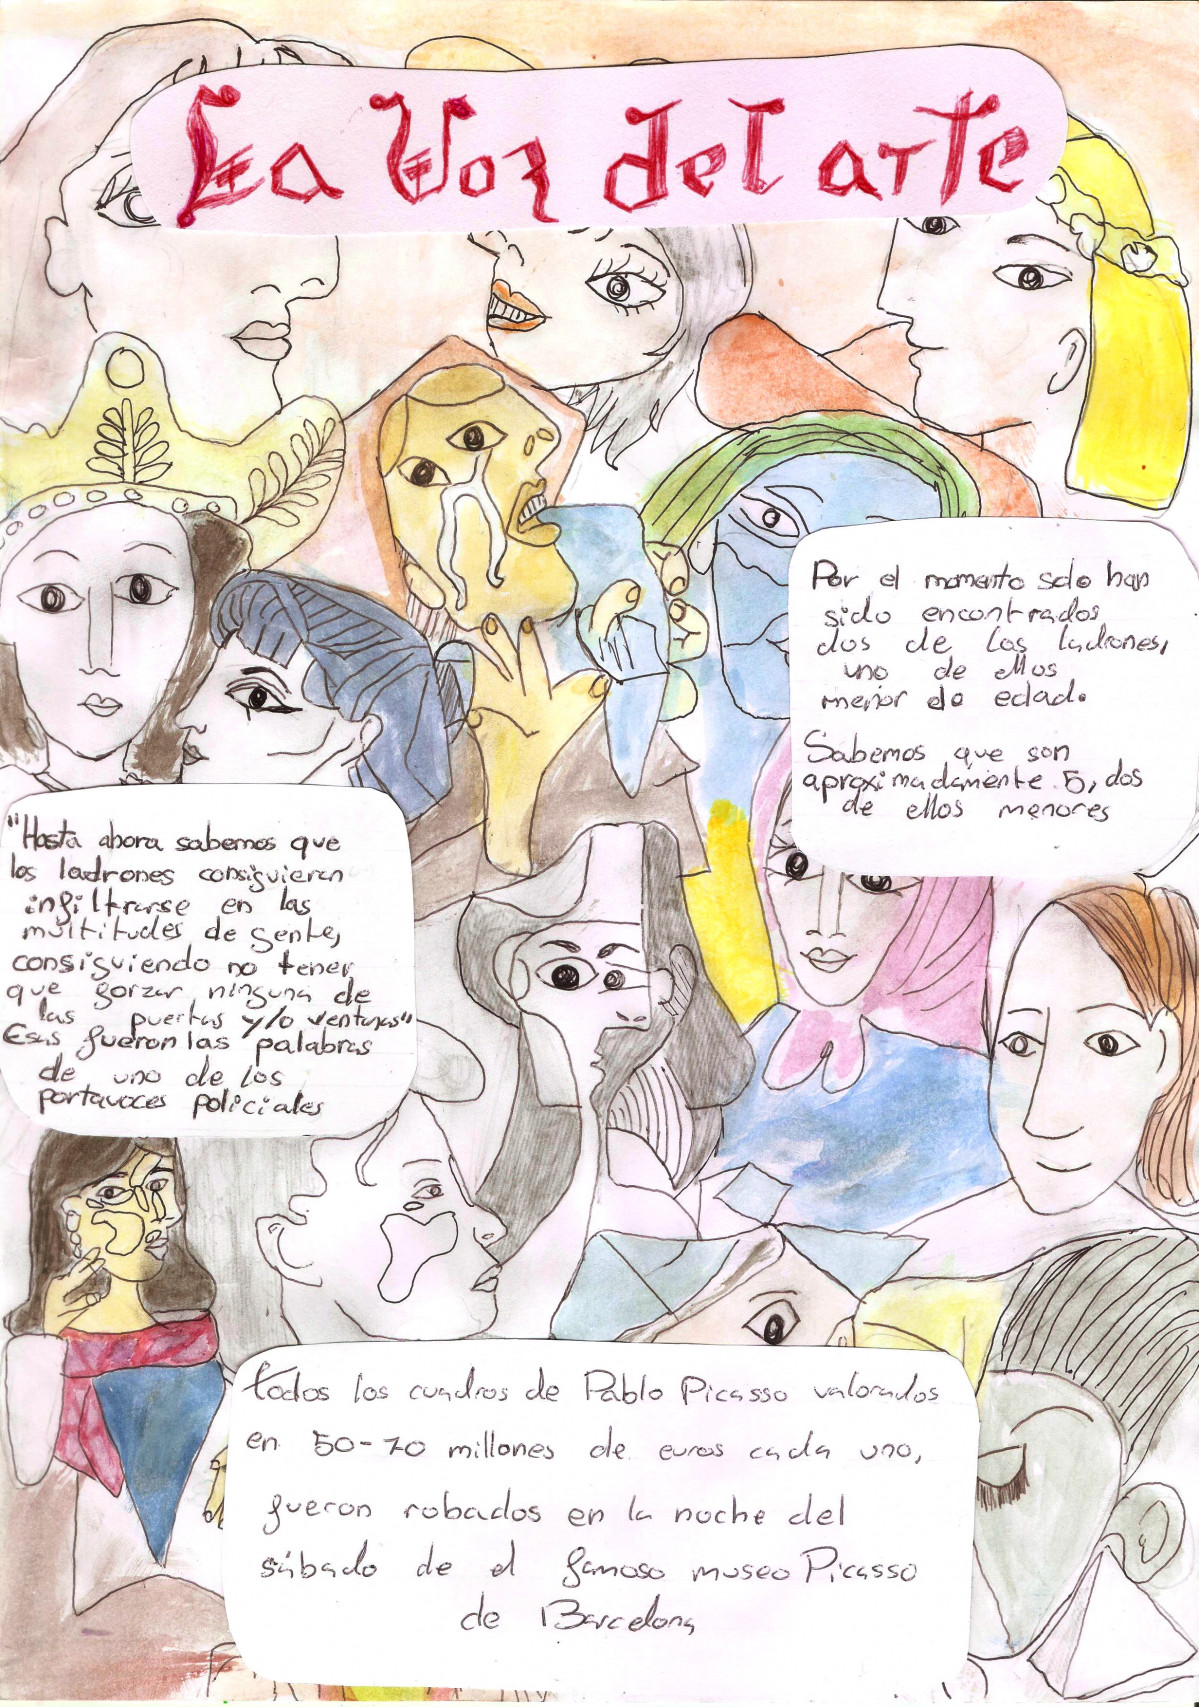 La Voz del arte
Por el momento solo han
sido encontrados
dos de los ladrones,
uno de ellos
menor de edad.
Sabemos que son
aproximadamente 5, dos
de ellos menores
"Hasta ahora sabemos que
los ladrones consiguieron
infiltrarse en las
multitudes de gente,
consiguiendo no tener
que forzar ninguna de
las puertas y/o ventanas"
Esas fueron las palabras
de uno de los
portavoces policiales
todos los cuadros de Pablo Picasso valorados
en 50-70 millones de euros cada uno,
fueron robados en la noche del
sábado de el famoso museo Picasso
de Barcelona